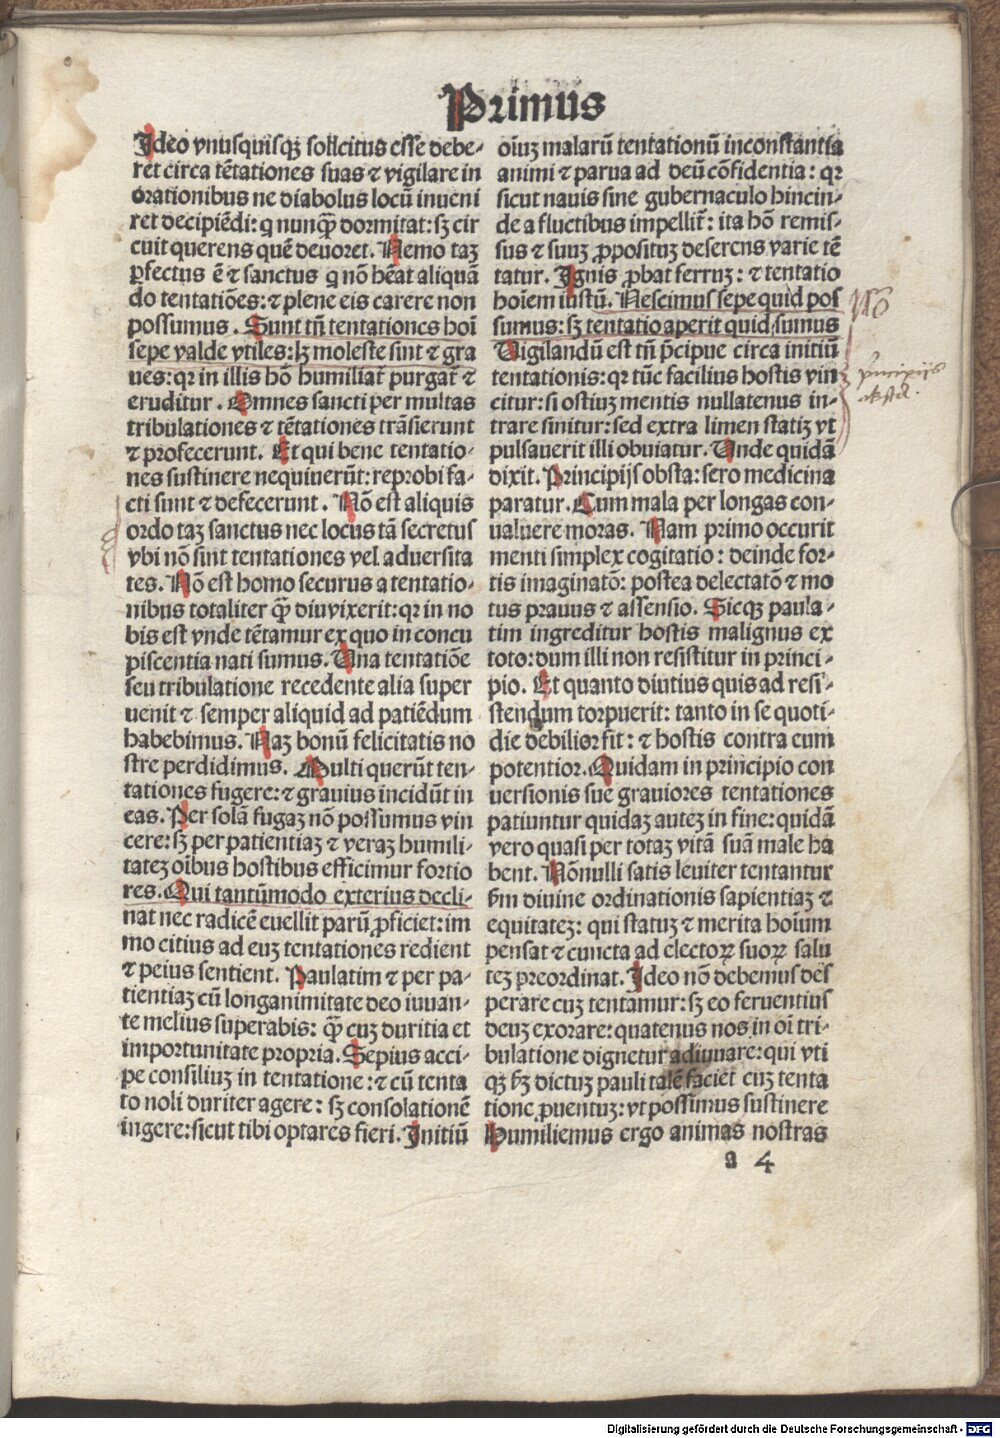 Primus
Ideo vnusquisqꝫ sollicitus esse debe-
ret circa tētationes suas ⁊ vigilare in
orationibus ne diabolus locū inueni
ret decipiēdi: q nunqꝫ̄ dormitat: sꝫ cir
cuit querens quē deuoret. Nemo taꝫ
ꝑfectus ē ⁊ sanctus q nō hēat aliquā
do tentatiōes: ⁊ plene eis carere non
possumus. Sunt tn̄ tentationes hoī
sepe valde vtiles: lꝫ moleste sint ⁊ gra
ues: qꝛ in illis hō humiliat᷑ purgat᷑ ⁊
eruditur. Omnes sancti per multas
tribulationes ⁊ tētationes trāsierunt
⁊ profecerunt. Et qui bene tentatio-
nes sustinere nequiuerūt: reprobi fa-
cti sunt ⁊ defecerunt. Nō est aliquis
ordo taꝫ sanctus nec locus tā secretus
vbi nō sint tentationes vel aduersita
tes. Nō est homo securus a tentatio-
nibus totaliter qꝫ̄ diu vixerit: qꝛ in no
bis est vnde tētamur ex quo in concu
piscentia nati sumus. Una tentatiōe
seu tribulatione recedente alia super
uenit ⁊ semper aliquid ad patiēdum
habebimus. Naꝫ bonū felicitatis no
stre perdidimus. Multi querūt ten-
tationes fugere: ⁊ grauius incidūt in
eas. Per solā fugaꝫ nō possumus vin
cere: sꝫ per patientiaꝫ ⁊ veraꝫ humili-
tateꝫ oībus hostibus efficimur fortio
res. Qui tantūmodo exterius decli-
nat nec radicē euellit parū ꝓficiet: im
mo citius ad euꝫ tentationes redient
⁊ peius sentient. Paulatim ⁊ per pa-
tientiaꝫ cū longanimitate deo iuuan-
te melius superabis: qꝫ̄ cuꝫ duritia et
importunitate propria. Sepius acci-
pe consiliuꝫ in tentatione: ⁊ cū tenta
to noli duriter agere: sꝫ consolationē
ingere: sicut tibi optares fieri. Initiū
oīuꝫ malarū tentationū inconstantia
animi ⁊ parua ad deū cōfidentia: qꝛ
sicut nauis sine gubernaculo hincin-
de a fluctibus impellit᷑: ita hō remis-
sus ⁊ suuꝫ ꝓposituꝫ deserens varie tē
tatur. Ignis ꝓbat ferruꝫ: ⁊ tentatio
hoīem iustū. Nescimus sepe quid pos
sumus: sꝫ tentatio aperit quid sumus
Vigilandū est tn̄ p̄cipue circa initiū
tentationis: qꝛ tūc facilius hostis vin
citur: si ostiuꝫ mentis nullatenus in-
trare sinitur: sed extra limen statiꝫ vt
pulsauerit illi obuiatur. Unde quidā
dixit. Principijs obsta: sero medicina
paratur. Cum mala per longas con-
ualuere moras. Nam primo occurit
menti simplex cogitatio: deinde for-
tis imaginatō: postea delectatō ⁊ mo
tus prauus ⁊ assensio. Sicqꝫ paula-
tim ingreditur hostis malignus ex
toto: dum illi non resistitur in princi-
pio. Et quanto diutius quis ad resi-
stendum torpuerit: tanto in se quoti-
die debilior fit: ⁊ hostis contra eum
potentior. Quidam in principio con
uersionis sue grauiores tentationes
patiuntur quidaꝫ auteꝫ in fine: quidā
vero quasi per totaꝫ vitā suā male ha
bent. Nōnulli satis leuiter tentantur
ẜm diuine ordinationis sapientiaꝫ ⁊
equitateꝫ: qui statuꝫ ⁊ merita hoīum
pensat ⁊ cuncta ad electoꝝ suoꝝ salu
teꝫ preordinat. Ideo nō debemus des
perare cuꝫ tentamur: sꝫ eo feruentius
deuꝫ exorare: quatenus nos in oī tri-
bulatione dignetur adiuuare: qui vti
qꝫ ẜꝫ dictuꝫ pauli talē faciet cuꝫ tenta
tione ꝓuentuꝫ: vt possimus sustinere
Humiliemus ergo animas nostras
a 4
principijs
obsta.
Digitalisierung gefördert durch die Deutsche Forschungsgemeinschaft - DFG